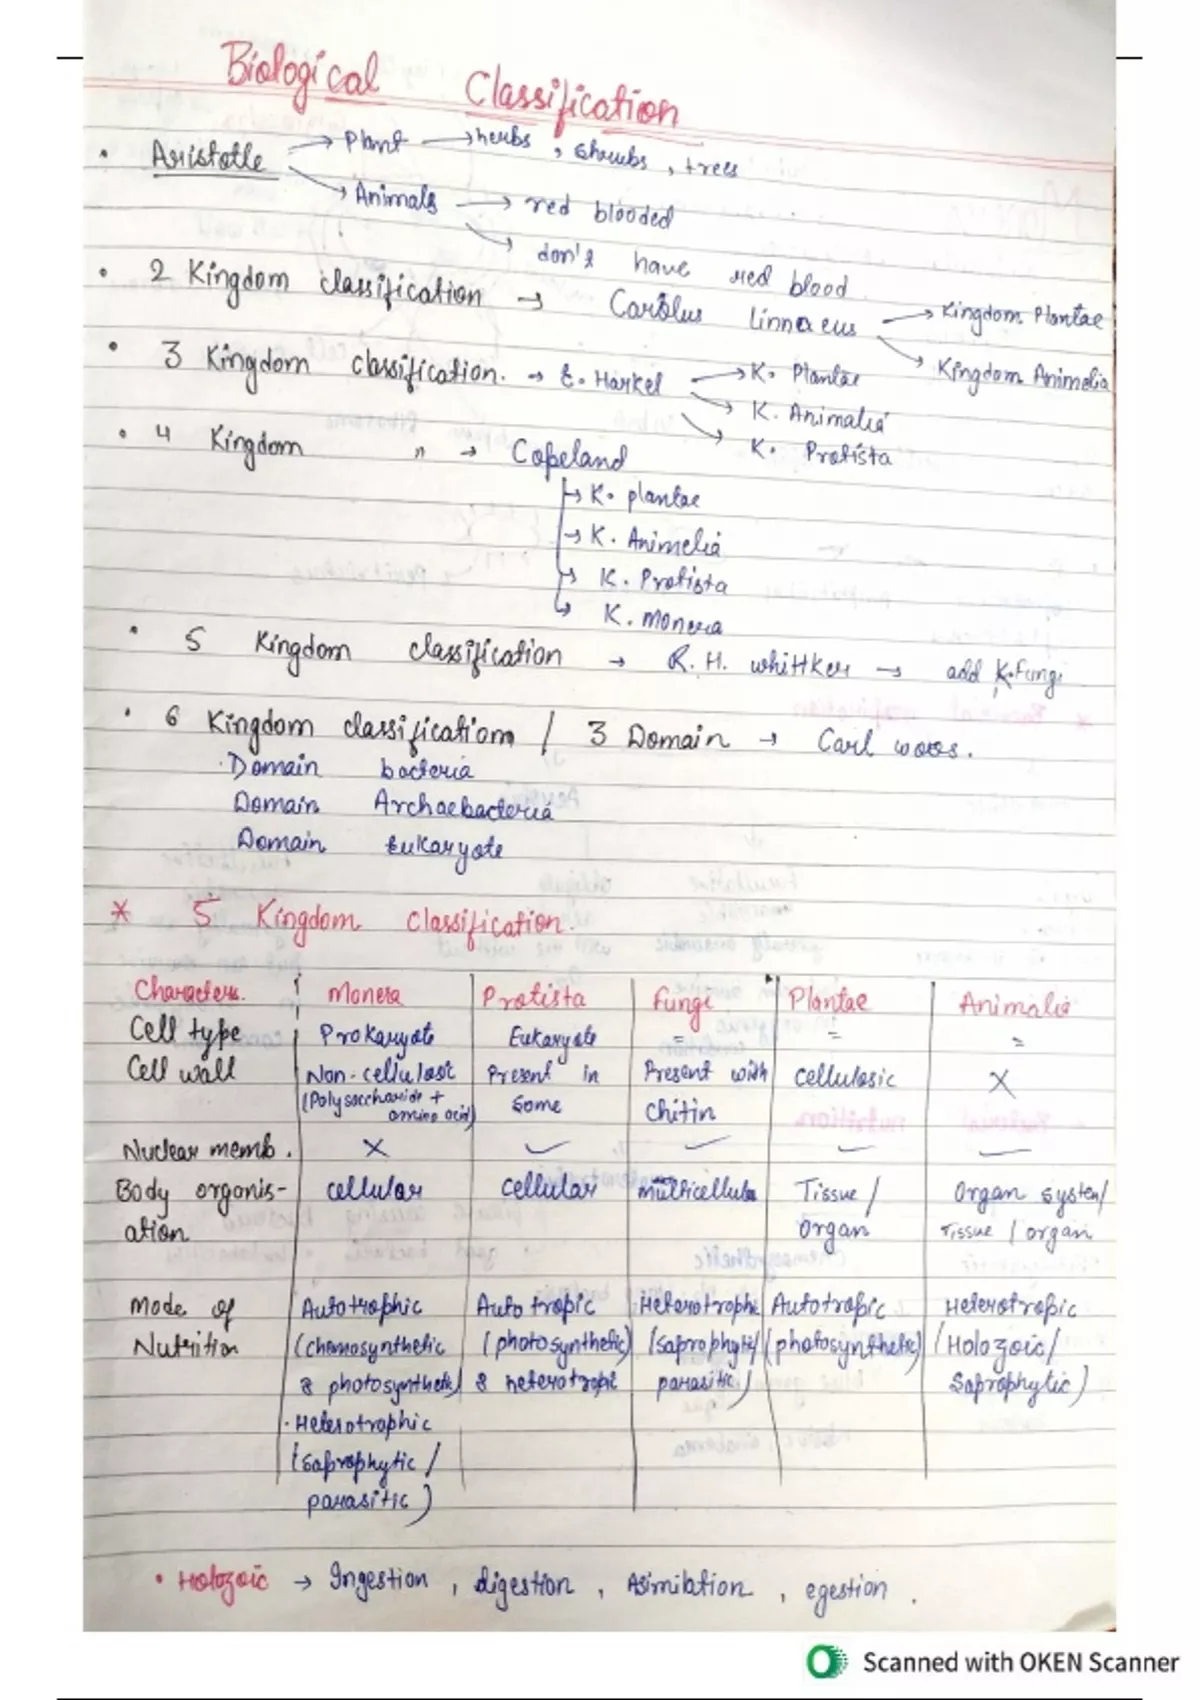 Biological Classification
• Aristotle → Plant → herbs, shrubs, trees
→ Animals → red blooded
→ don't have red blood
• 2 Kingdom classification → Carolus Linnaeus → Kingdom Plantae
→ Kingdom Animelia
• 3 Kingdom classification. → E. Harkel → K. Plantae
→ K. Animalia
→ K. Protista
• 4 Kingdom " → Copeland
→ K. plantae
→ K. Animelia
→ K. Protista
→ K. Monera
• 5 Kingdom classification → R. H. whittker → add K. Fungi
• 6 Kingdom classification / 3 Domain → Carl woos.
Domain bacteria
Domain Archaebacteria
Domain Eukaryote
* 5 Kingdom Classification.
Characters. Monera Protista Fungi Plantae Animalia
Cell type Prokaryote Eukaryote = = =
Cell wall Non-cellulost Present in Present with cellulosic ×
(Polysaccharide + amino acid) some chitin
Nuclear memb. × ✓ ✓ ✓ ✓
Body organis- cellular cellular multicellular Tissue / Organ system/
ation organ Tissue / organ
Mode of Autotrophic Autotropic Heterotrophic Autotropic Heterotropic
Nutrition (chemosynthetic (photosynthetic) (saprophytic/ (photosynthetic) (Holozoic/
& photosynthetic) & heterotropic parasitic) Saprophytic)
· Heterotrophic
(saprophytic /
parasitic)
• Holozoic → Ingestion, digestion, Asimilation, egestion.
Scanned with OKEN Scanner